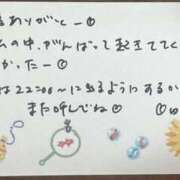 ありがとー
の中、がんばって起きててく
かったー
は22:00〜に出るようにあるか
また呼んでね